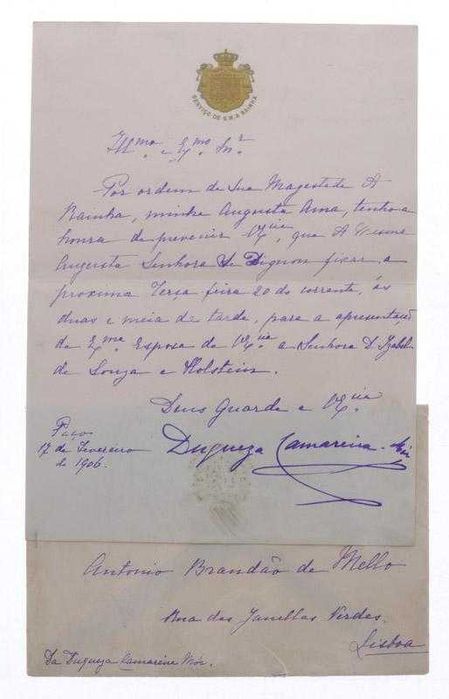 SERVIÇO DE S.M.A RAINHA
Illmo. e Exmo. Snr.
Por ordem de Sua Magestade A
Rainha, minha Augusta Ama, tenho a
honra de prevenir V.Exia, que A Mesma
Augusta Senhora Se Dignou fixar, a
proxima Terça feira 20 do corrente, ás
duas e meia da tarde, para a apresentação
da Exma. Esposa de V.Exia a Senhora D. Izabel
de Souza e Holstein.
Deus Guarde a V.Exia
Paço
17 de Fevereiro
de 1906.
Duqueza Camareira-Mór
Antonio Brandão de Mello
Rua das Janellas Verdes.
Lisboa
Da Duqueza Camareira Mór.